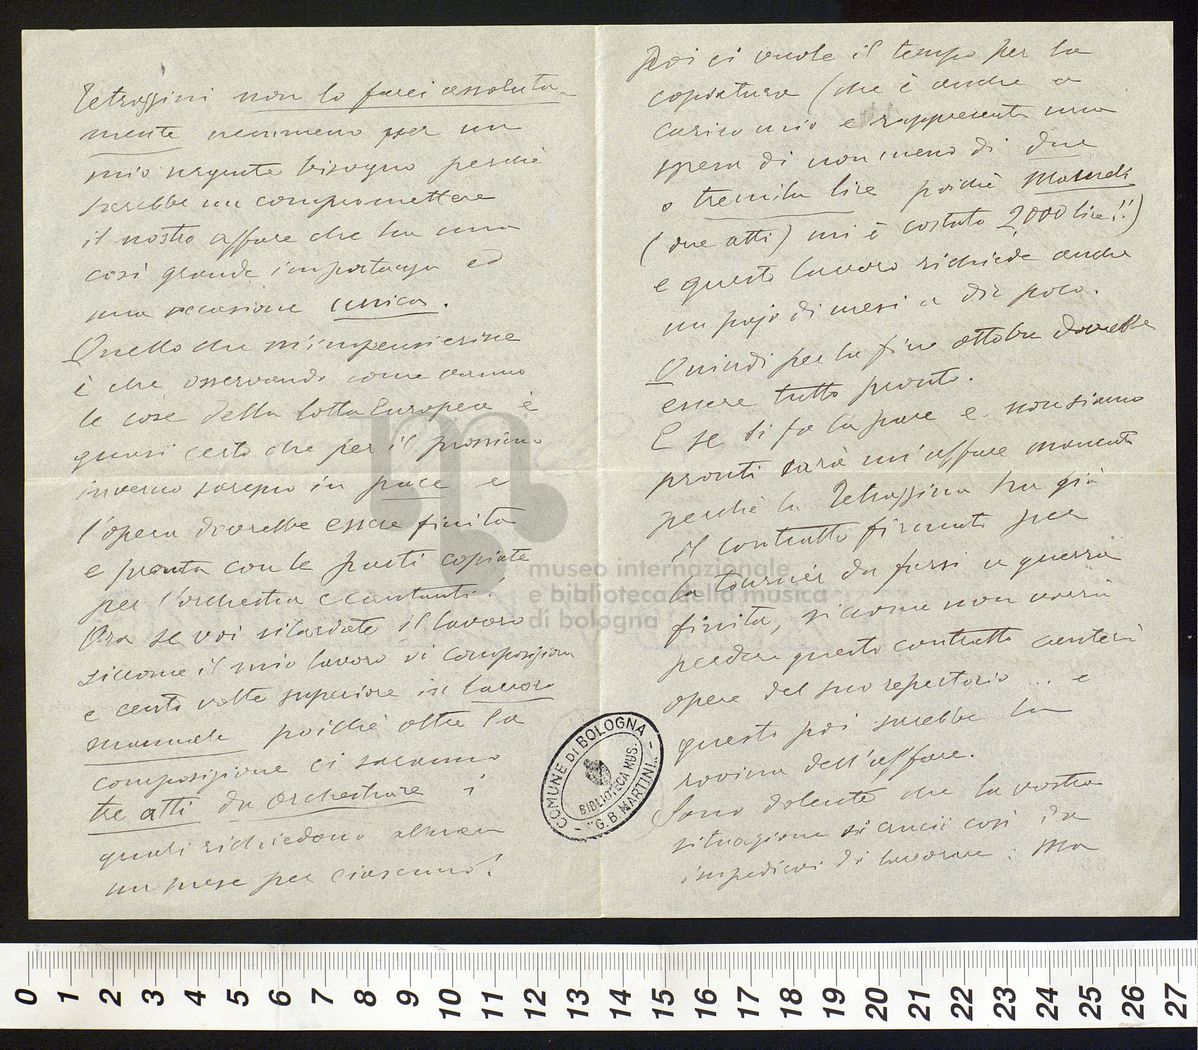 Tetrazzini non lo farei assoluta-
mente nemmeno per un
mio urgente bisogno perchè
sarebbe un compromettere
il nostro affare che ha una
così grande importanza ed
una occasione unica.
Quello che m'impensierisce
è che osservando come vanno
le cose della lotta Europea è
quasi certo che per il prossimo
inverno saremo in pace e
l'opera dovrebbe essere finita
e pronta con le parti copiate
per l'orchestra e cantanti.
Ora se voi ritardate il lavoro
siccome il mio lavoro di composizione
è cento volte superiore in lavoro
manuale poichè oltre la
composizione ci saranno
tre atti da orchestrare i
quali richiedono almeno
un mese per ciascuno!
Poi ci vuole il tempo per la
copiatura (che è anche a
carico mio e rappresenta una
spesa di non meno di due
o tremila lire poichè
(due atti) mi è costato 2,000 lire!!)
e questo lavoro richiede anche
un pajo di mesi a dir poco.
Quindi per la fine ottobre dovrebbe
essere tutto pronto.
E se si fa la pace e non siamo
pronti sarà un'affare mancato
perchè la Tetrazzini ha già
il contratto firmato per
la tournée da farsi a guerra
finita, siccome non vorrà
perdere questo contratto canterà
opere del suo repertorio ... e
questa poi sarebbe la
rovina dell'affare.
Sono dolente che la vostra
situazione sia così da
impedirvi di lavorare: Ma
COMUNE DI BOLOGNA
BIBLIOTECA MUS.
"G.B. MARTINI"
museo internazionale
e biblioteca della musica
di bologna
0 1 2 3 4 5 6 7 8 9 10 11 12 13 14 15 16 17 18 19 20 21 22 23 24 25 26 27